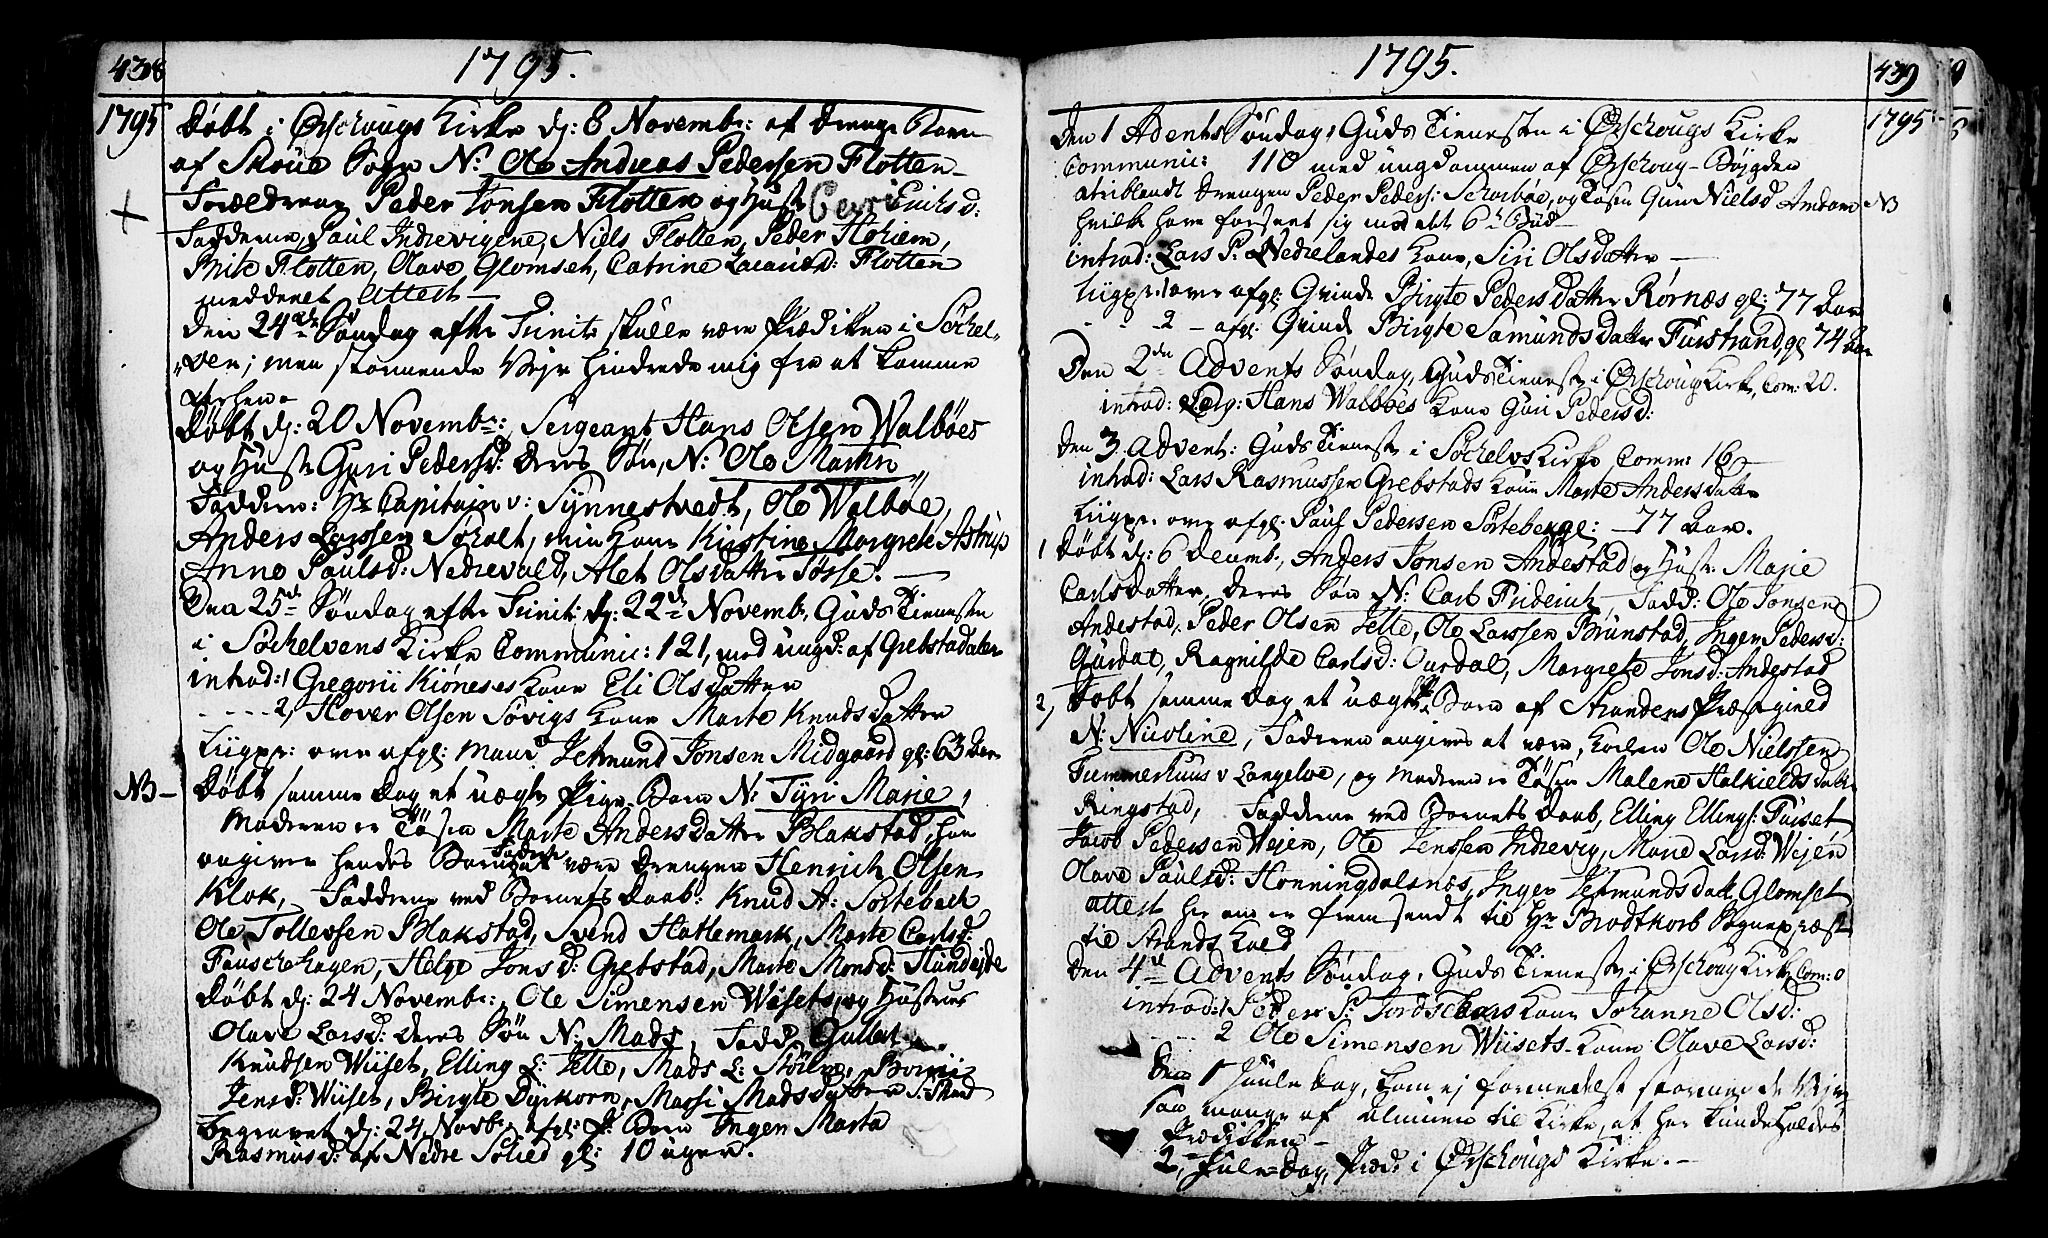 438
1795.
1795
Døbt i Ørschougs Kirke d: 8 Novembr: et drenge Barn
af Skoue Sogn N: Ole Andreas Pedersen Flotten
Forældrene Peder Jonsen Flotten og Hust: Berit Erichsd:
Fadderne, Paul Indrevigene, Niels Flotten, Peder Hoheem,
Brite Flotten, Olave Glomset, Catrine Flotten
meddeelt Attest
Den 24de Søndag efter Trinit: skulle være Prædiken i Søchel-
ven; men stormende Vejr hindrede mig fra at komme
derhen.
Døbt d: 20 Novembr:, Sergeant Hans Olsen Walbøes
og Hust: Guri Pedersd: deres Søn, N: Ole Martin
Faddere: Hr Capitain v: Synnestvedt, Ole Walbøe,
Anders Larssen Søholt, min Kone Kirstine Margrete Astrup
Anne Paulsd: Nedrevold, Alet Olsdatter Tosse.
Den 25de Søndag efter Trinit: d: 22de Novemb: Guds Tieneste
i Søchelvens Kirke Communic: 121, med ungd: af Grebstadalen
introd: 1 Gregorii Kioneses Kone Eli Olsdatter
2, Hover Olsen Søvigs Kone Marte Knudsdatter
Liigpr: over afg: Mand Jetmund Jonsen Midgaard gl: 63 Aar
NB Døbt samme dag et uægte Pige-Barn N: Tyri Marie,
Moderen er Tøsen Marte Andersdatter Blakstad, hun
angiver hendes Barns Fader at være drengen Henrich Olsen
Klok, Fadderne ved Barnets Daab: Knud A: Sortebech
Ole Tollefsen Blakstad, Svend Hatlemark, Marte Carlsd:
Fauschehagen, Helge Jonsd: Grebstad, Marte Monsd: Hundejde
Døbt d: 24 Novembr:, Ole Simensen Wiisets og Hustrues
Olave Larsd: deres Søn N: Mads, Fadd: Gullet
Knudsen Wiiset, Elling E: Jelle, Mads L: Støle,
Jensd: Wiiset, Birgte Dyrkorn, Massi Madsdatter S: Strand
Begravet d: 24 Novbr: afg: P: Barn Ingen Marta
Rasmusd: af Nedre Solied gl: 10 uger.
1795.
439
1795
Den 1 Advents Søndag, Guds Tieneste i Ørschougs Kirke
Communic: 110 med ungdommen af Ørschoug-Bøjgden
deriblandt drengen Peder Peders: Schorbøe, og Tøsen Guri Nielsd Amdam NB
hvilke have forseet sig mod det 6te Bud
introd: Lars P: Nedrelandes Kone, Siri Olsdatter
Liigpr: 1 over afg: Qvinde Birgte Pedersdatter Rørnæs gl: 77 Aar
2 - afg: Qvinde Birgte Samundsdatter Furstrand, gl 74 Aar
Den 2den Advents Søndag, Guds Tieneste i Ørschoug Kirke, Com: 20.
introd: Serg: Hans Walbøes Kone Guri Pedersd:
Den 3 Advent: Guds Tieneste i Søchelvs Kirke Comm: 16
introd: Lars Rasmussen Grebstads Kone Marte Andersdatter
Liigpr: over afg: Paul Pedersen Sortebech gl: 77 Aar.
1 Døbt d: 6 Decemb:, Anders Jonsen Andestad og Hust: Marie
Carlsdatter, deres Søn N: Carl Friderich, Fadd: Ole Jonsen
Andestad, Peder Olsen Jelle, Ole Larssen Brunstad, Ingen Pedersd:
Gurdal, Ragnilde Carlsd: Ourdal, Margrete Jonsd: Andestad
2, Døbt samme dag et uægte Barn af Strandens Præstegield
N: Nicoline, Faderen angives at være, Karlen Ole Nielssen
Tummerhuus v Langeløe, og Moderen er Tøsen Malene Halkieldsdatter
Ringstad, Fadderne ved Barnets Daab, Elling Ellings: Furset
Jacob Pedersen Wejen, Ole Jenssen Indrevig, Marie Larsd: Wejen
Olave Paulsd: Honningdalsnæs, Inger Jetmundsdatt: Glomset
attest her om er fremsendt til Hr Brodtkorb Sognepræst
til Strands Kald
Den 4de Advents Søndag, Guds Tieneste i Ørschoug Kirke, Com: 0
introd: 1 Peder S: Kone Johanne Olsd:
2 Ole Simensen Wiisets Kone Olave Larsd:
Den 1 Juule dag, kom ej formedelst stormende Vejr
saa mange af Almuen til Kirke, at her kunde holdes
Prædikken
2, Jule-dag, Præd: i Ørschougs Kirke.